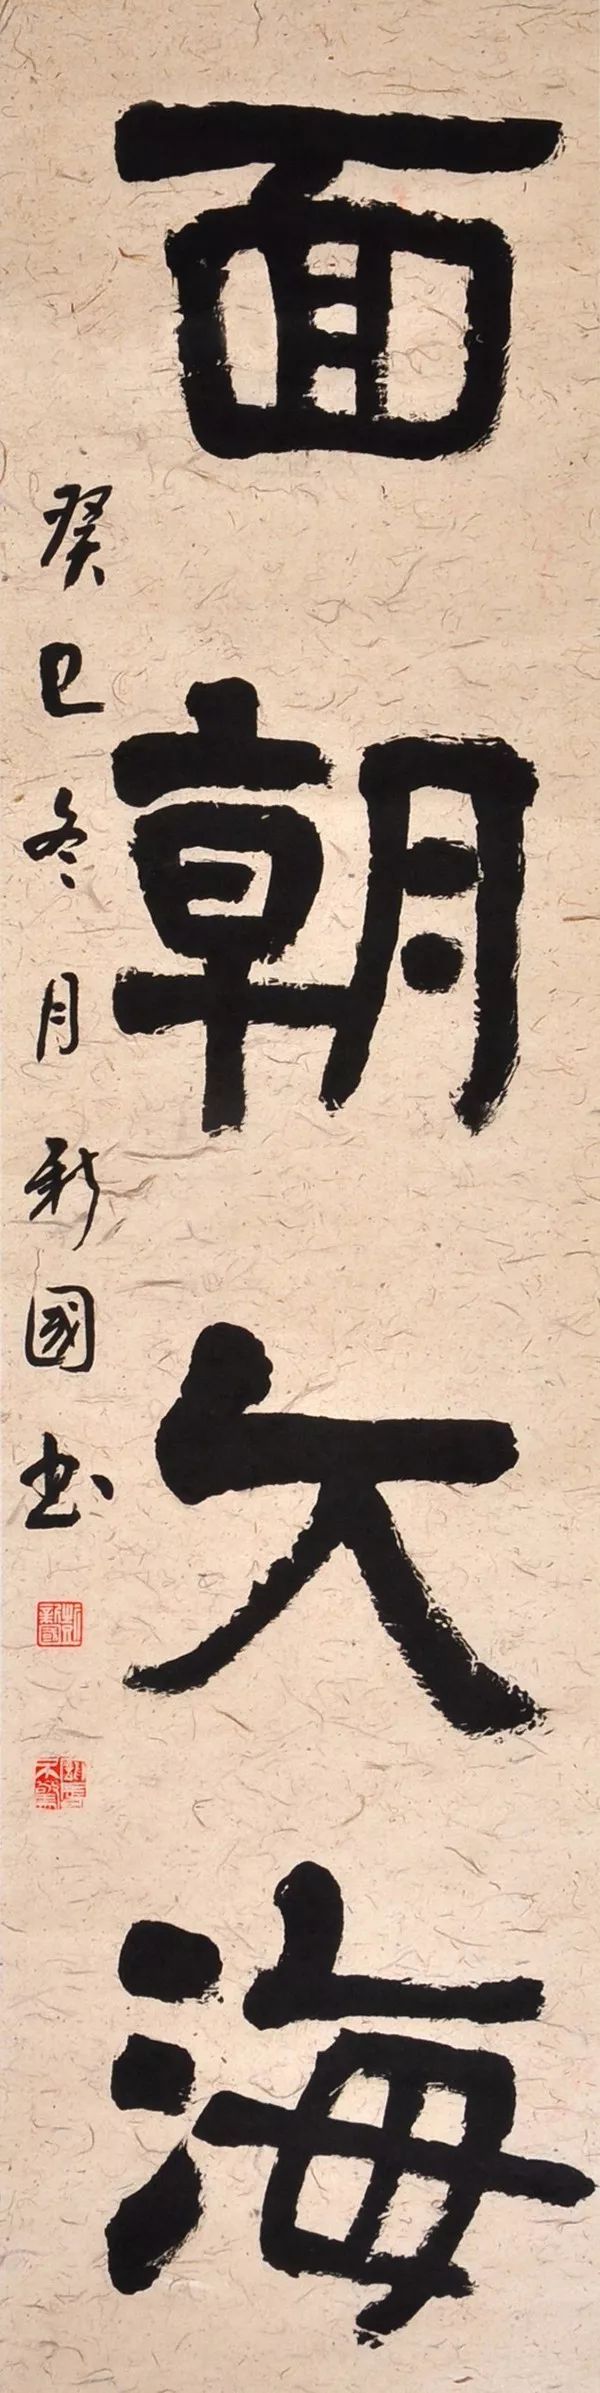 面朝大海
癸巳冬月新國书